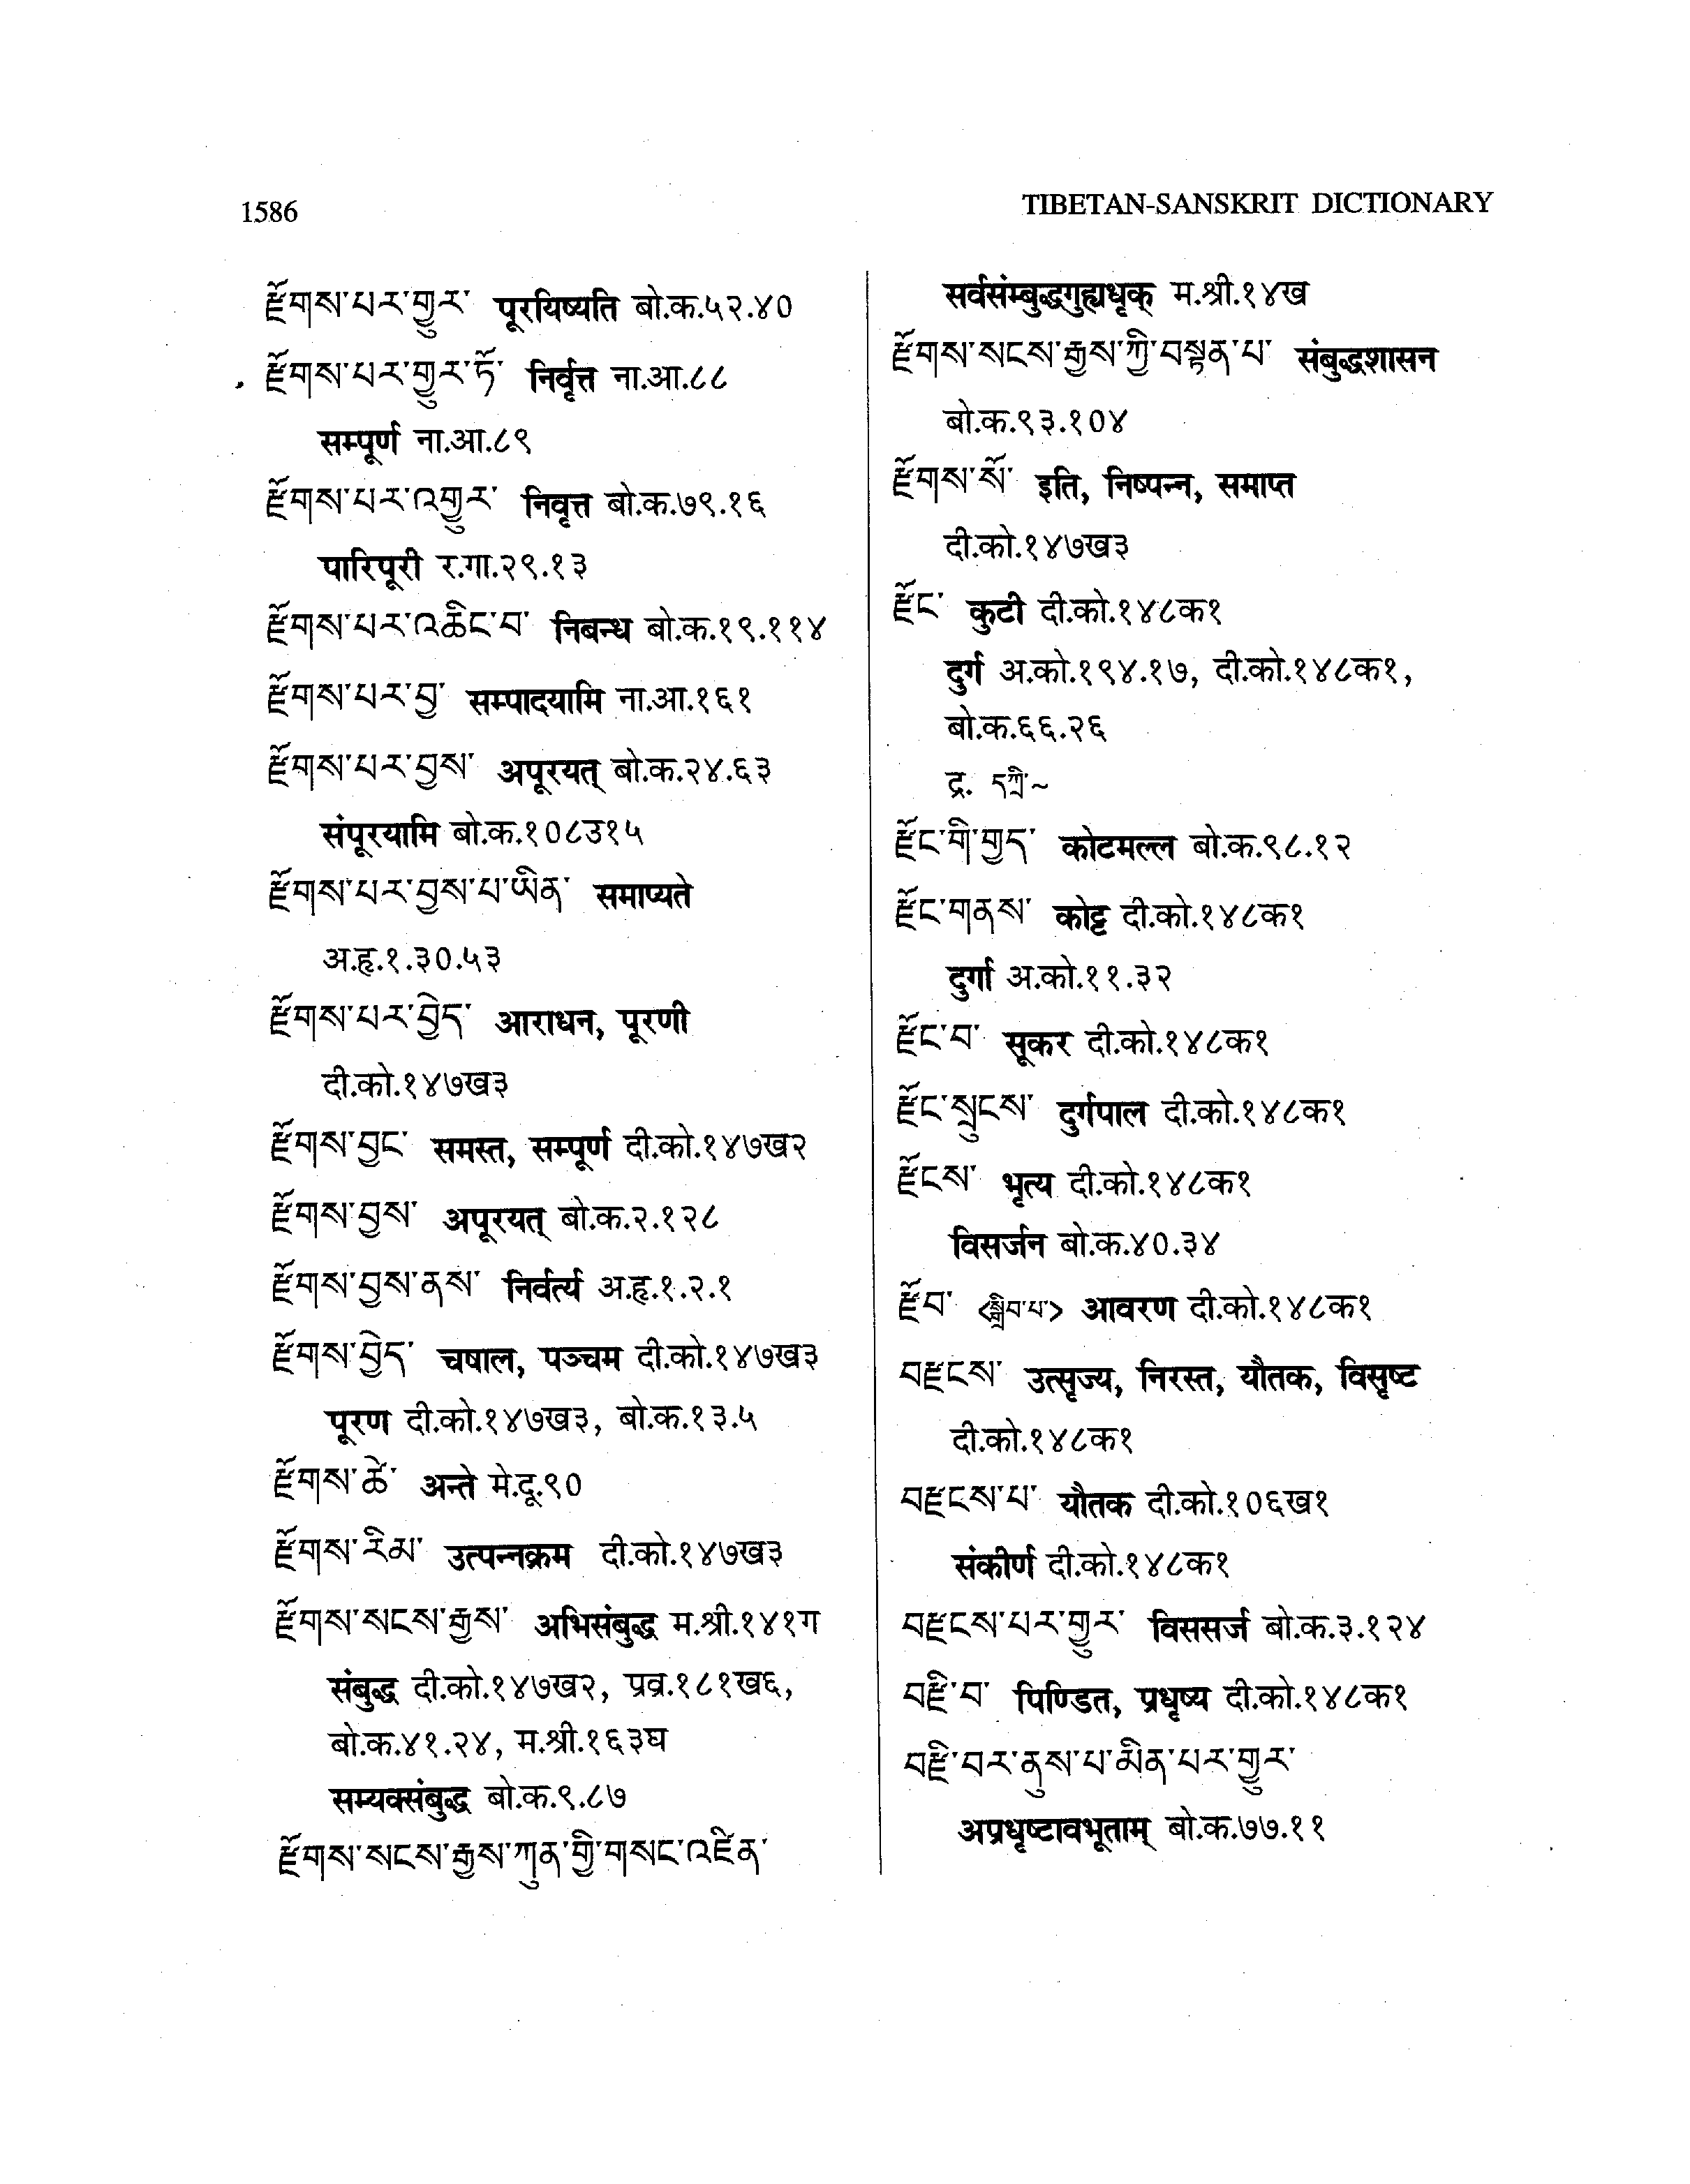 1586
TIBETAN-SANSKRIT DICTIONARY
རྫོགས་པར་གྱུར་ पूरयिष्यति बो.क.५२.४०
རྫོགས་པར་གྱུར་ཏོ་ निर्वृत्त ना.आ.८८
सम्पूर्ण ना.आ.८९
རྫོགས་པར་འགྱུར་ निवृत्त बो.क.७९.१६
पारिपूरी र.गा.२९.१३
རྫོགས་པར་འཆིང་བ་ निबन्ध बो.क.१९.११४
རྫོགས་པར་བྱ་ सम्पादयामि ना.आ.१६१
རྫོགས་པར་བྱས་ अपूरयत् बो.क.२४.६३
संपूरयामि बो.क.१०८उ१५
རྫོགས་པར་བྱས་པ་ཡིན་ समाप्यते
अ.हृ.१.३०.५३
རྫོགས་པར་བྱེད་ आराधन, पूरणी
दी.को.१४७ख३
རྫོགས་བྱང་ समस्त, सम्पूर्ण दी.को.१४७ख२
རྫོགས་བྱས་ अपूरयत् बो.क.२.१२८
རྫོགས་བྱས་ནས་ निर्वर्त्य अ.हृ.१.२.१
རྫོགས་བྱེད་ चषाल, पञ्चम दी.को.१४७ख३
पूरण दी.को.१४७ख३, बो.क.१३.५
རྫོགས་ཚེ་ अन्ते मे.दू.९०
རྫོགས་རིམ་ उत्पन्नक्रम दी.को.१४७ख३
རྫོགས་སངས་རྒྱས་ अभिसंबुद्ध म.श्री.१४१ग
संबुद्ध दी.को.१४७ख२, प्रव्र.१८१ख६,
बो.क.४१.२४, म.श्री.१६३घ
सम्यक्संबुद्ध बो.क.९.८७
རྫོགས་སངས་རྒྱས་ཀུན་གྱི་གསང་འཛིན་
सर्वसंम्बुद्धगुह्यधृक् म.श्री.१४ख
རྫོགས་སངས་རྒྱས་ཀྱི་བསྟན་པ་ संबुद्धशासन
बो.क.९३.१०४
རྫོགས་སོ་ इति, निष्पन्न, समाप्त
दी.को.१४७ख३
རྫོང་ कुटी दी.को.१४८क१
दुर्ग अ.को.१९४.१७, दी.को.१४८क१,
बो.क.६६.२६
द्र. དཀྲི་~
རྫོང་གི་གྱད་ कोटमल्ल बो.क.९८.१२
རྫོང་གནས་ कोट्ट दी.को.१४८क१
दुर्गा अ.को.११.३२
རྫོང་བ་ सूकर दी.को.१४८क१
རྫོང་སྲུངས་ दुर्गपाल दी.को.१४८क१
རྫོངས་ भृत्य दी.को.१४८क१
विसर्जन बो.क.४०.३४
རྫོབ་ <སྒྲིབ་པ་> आवरण दी.को.१४८क१
བརྫངས་ उत्सृज्य, निरस्त, यौतक, विसृष्ट
दी.को.१४८क१
བརྫངས་པ་ यौतक दी.को.१०६ख१
संकीर्ण दी.को.१४८क१
བརྫངས་པར་གྱུར་ विससर्ज बो.क.३.१२४
བརྫི་བ་ पिण्डित, प्रधृष्य दी.को.१४८क१
བརྫི་བར་ནུས་པ་མིན་པར་གྱུར་
अप्रधृष्टावभूताम् बो.क.७७.११